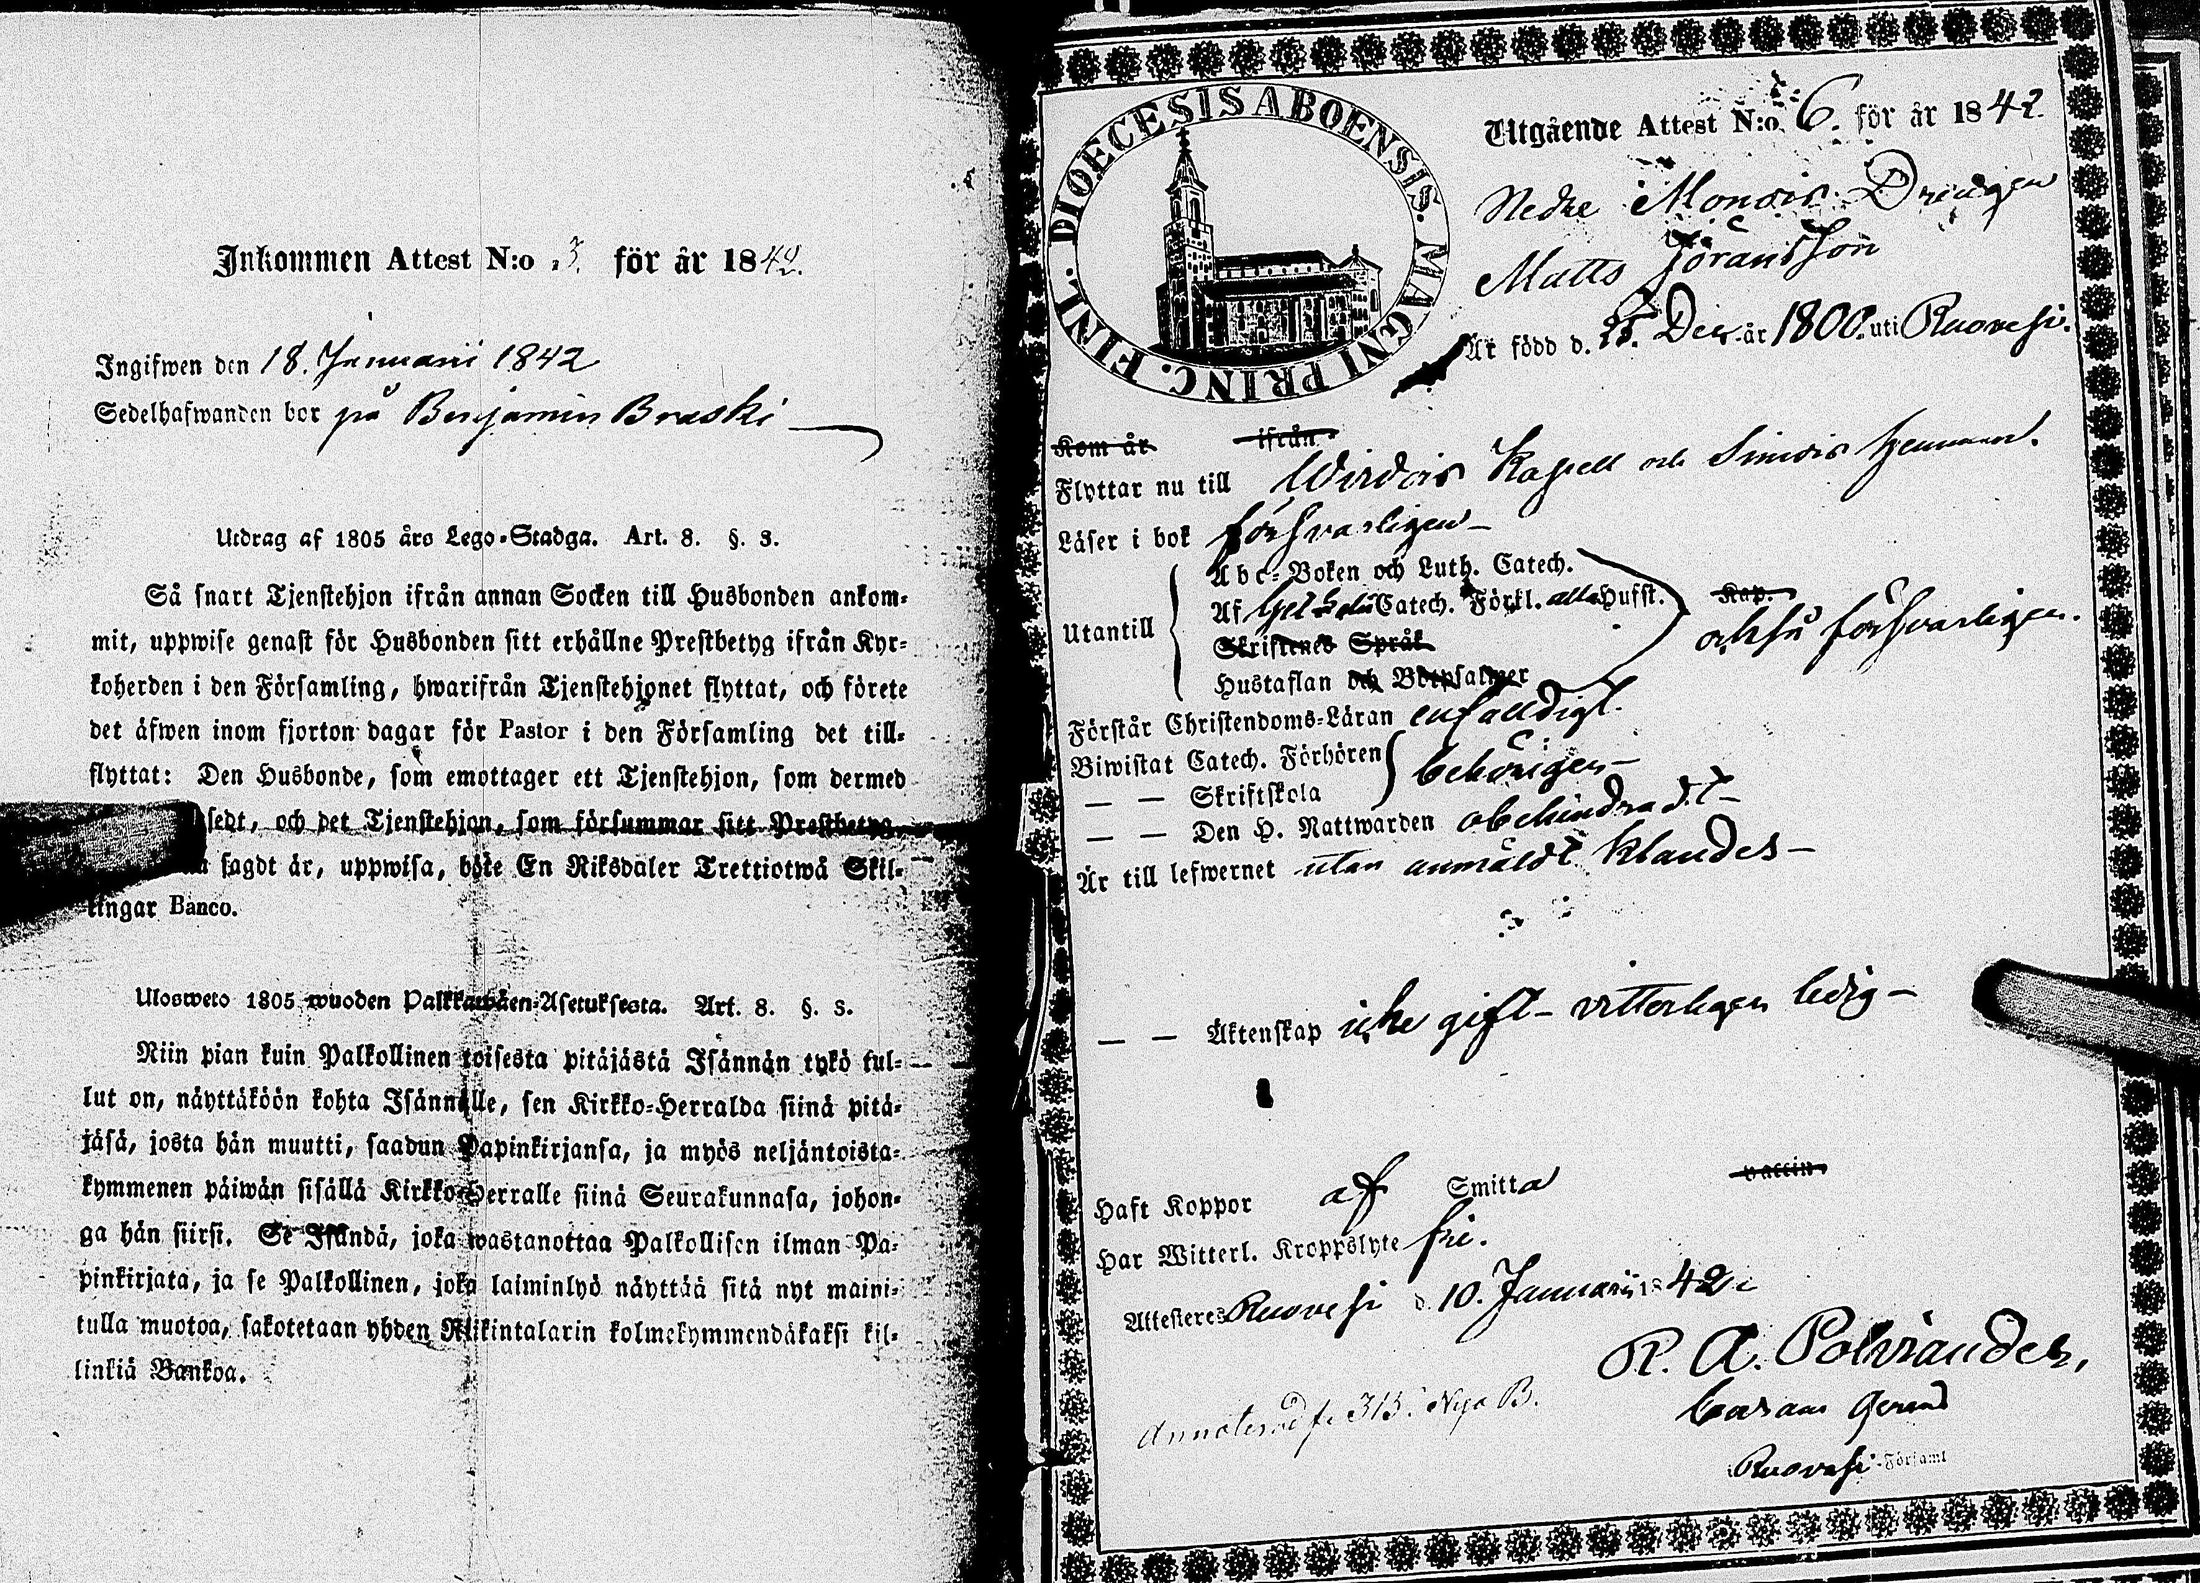 Inkommen Attest N:o 3. för år 1842.
Ingifwen den 18. Januarii 1842
Sedelhafwanden bor på Benjamin Braski
Utdrag af 1805 års Lego-Stadga. Art. 8. §. 3.
Så snart Tjenstehjon ifrån annan Socken till Husbonden ankom-
mit, uppwise genast för Husbonden sitt erhållne Prestbetyg ifrån Kyr-
koherden i den Församling, hwarifrån Tjenstehjonet flyttat, och förete
det äfwen inom fjorton dagar för Pastor i den Församling det till-
flyttat: Den Husbonde, som emottager ett Tjenstehjon, som dermed
sedt, och det Tjenstehjon, som försummar sitt Prestbetyg,
sagdt är, uppwisa, böte En Riksdaler Trettiotwå Skil-
lingar Banco.
Ulosweto 1805 wuoden Palkkawäen-Asetuksesta. Art. 8. §. 3.
Niin pian kuin Palkollinen toisesta pitäjästä Isännän tykö tul-
lut on, näyttäköön kohta Isännälle, sen Kirkko-Herralda siinä pitä-
jäsä, josta hän muutti, saadun Papinkirjansa, ja myös neljäntoista-
kymmenen päiwän sisällä Kirkko-Herralle siinä Seurakunnasa, johon-
ga hän siirsi. Se Isändä, joka wastanottaa Palkollisen ilman Pa-
pinkirjata, ja se Palkollinen, joka laiminlyö näyttää sitä nyt maini-
tulla muotoa, sakotetaan yhden Rikintalarin kolmekymmendäkaksi kil-
linkiä Bankoa.
DIOECESIS ABOENSIS. MAGNI PRINC. FINL.
Utgående Attest N:o 6. för år 1842.
Nedre Monois Drängen
Matts Jöransson
Är född d. 25. Dec. år 1800. uti Ruovesi.
Kom år ifrån
Flyttar nu till Wirdois Kapell och Simois hemman.
Läser i bok försvarligen
Utantill
Abc-Boken och Luth. Catech.
Af Catech. Förkl. alla Hufst. Kap.
Skriftenes Språk
också försvarligen.
Hustaflan och Botpsalmer
Förstår Christendoms-Läran enfaldigt.
Biwistat Catech. Förhören
behörigen
— — Skriftskola
— — Den H. Nattwarden obehindradt
Är till lefwernet utan anmäldt klander
— — Äktenskap icke gift - vitterligen ledig
Haft Koppor af Smitta vaccin
Har Witterl. Kroppslyte fri.
Attesteres Ruovesi d. 10. Januarii 1842
R. A. Polviander,
Ruovesi Församl
Annoterad f. 315. Nya B.